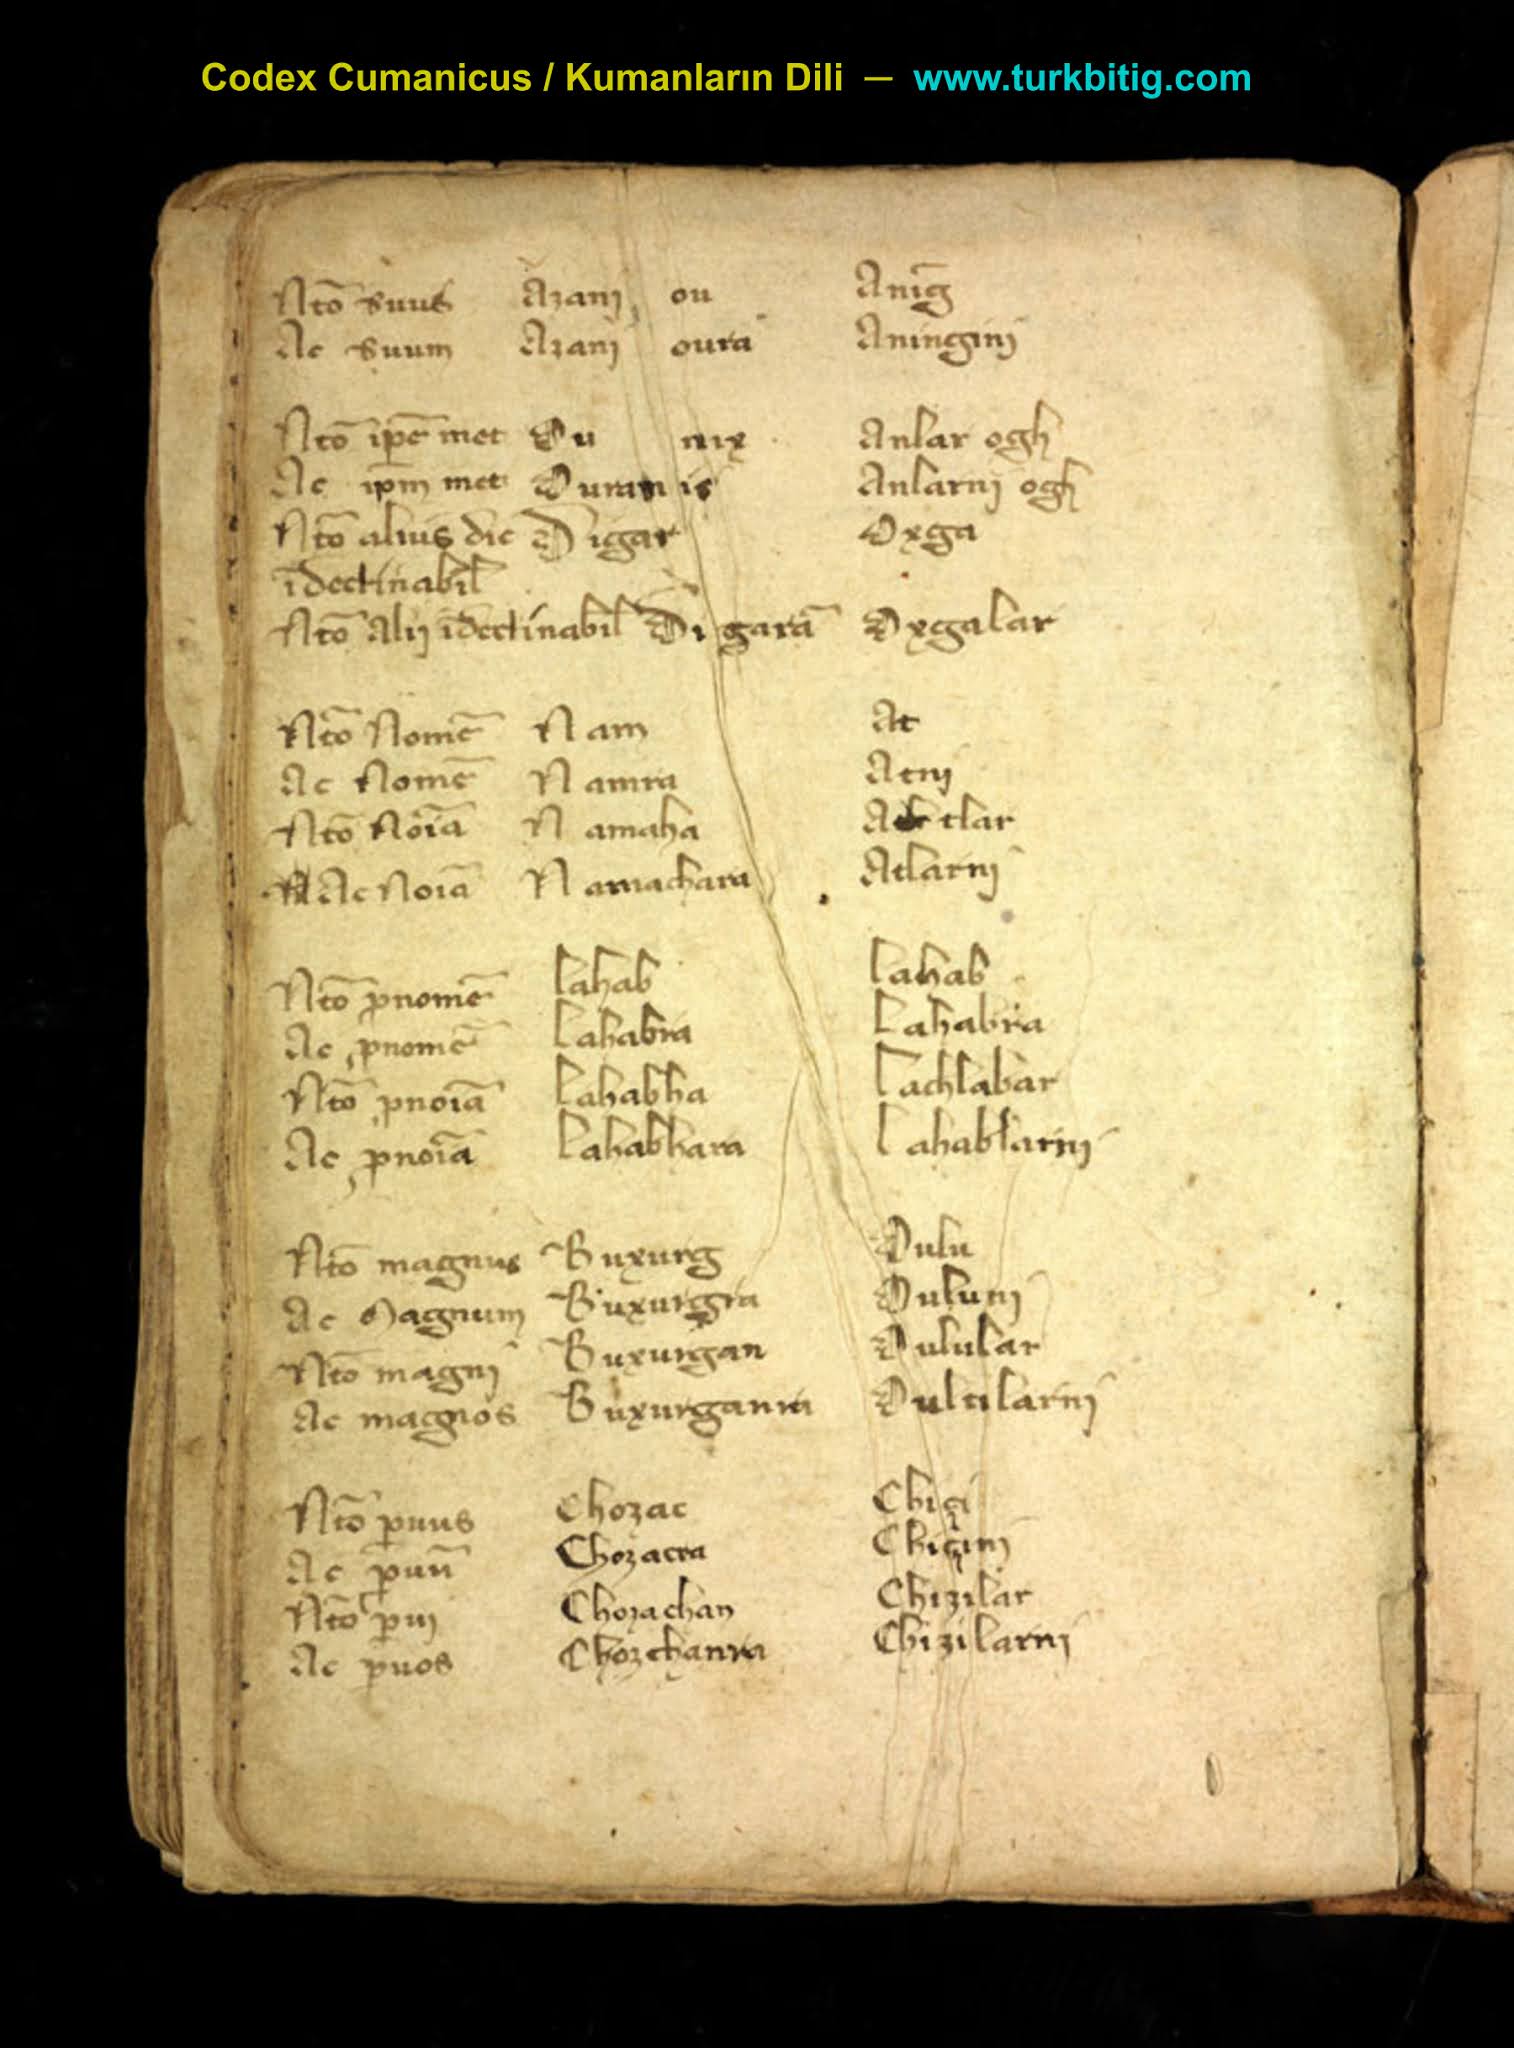 Codex Cumanicus / Kumanların Dili — www.turkbitig.com
Ntō suus Azani ou Anīg
Ac suum Azani oura Aningini
Ntō ip̄e met Ou nix Anlar ogh
Ac ip̄m met Ouran is Anlarni ogh
Ntō alius dic Digar Oxga
īdeclinabil
Ntō Alij īdeclinabil Digarā Oxgalar
Ntō Nomē Nam At
Ac Nomē Namra Atnj
Ntō Noīa Namaha tlar
Ac Noīa Namachara Atlarnj
Ntō pnomē Lahab Lahab
Ac pnomē Lahabra Lahabra
Ntō pnoīa Lahabha Lachlabar
Ac pnoīa Lahabhara Lahablarnj
Ntō magnus Buxurg Oulu
Ac Magnum Buxurgra Oulunj
Ntō magnj Buxurgan Oululer
Ac magnos Buxurganra Oulularnj
Ntō puus Chozac Chiçi
Ac puū Chozacra Chiçinj
Ntō puj Chozachan Chizilar
Ac puos Chozchanra Chizilarnj